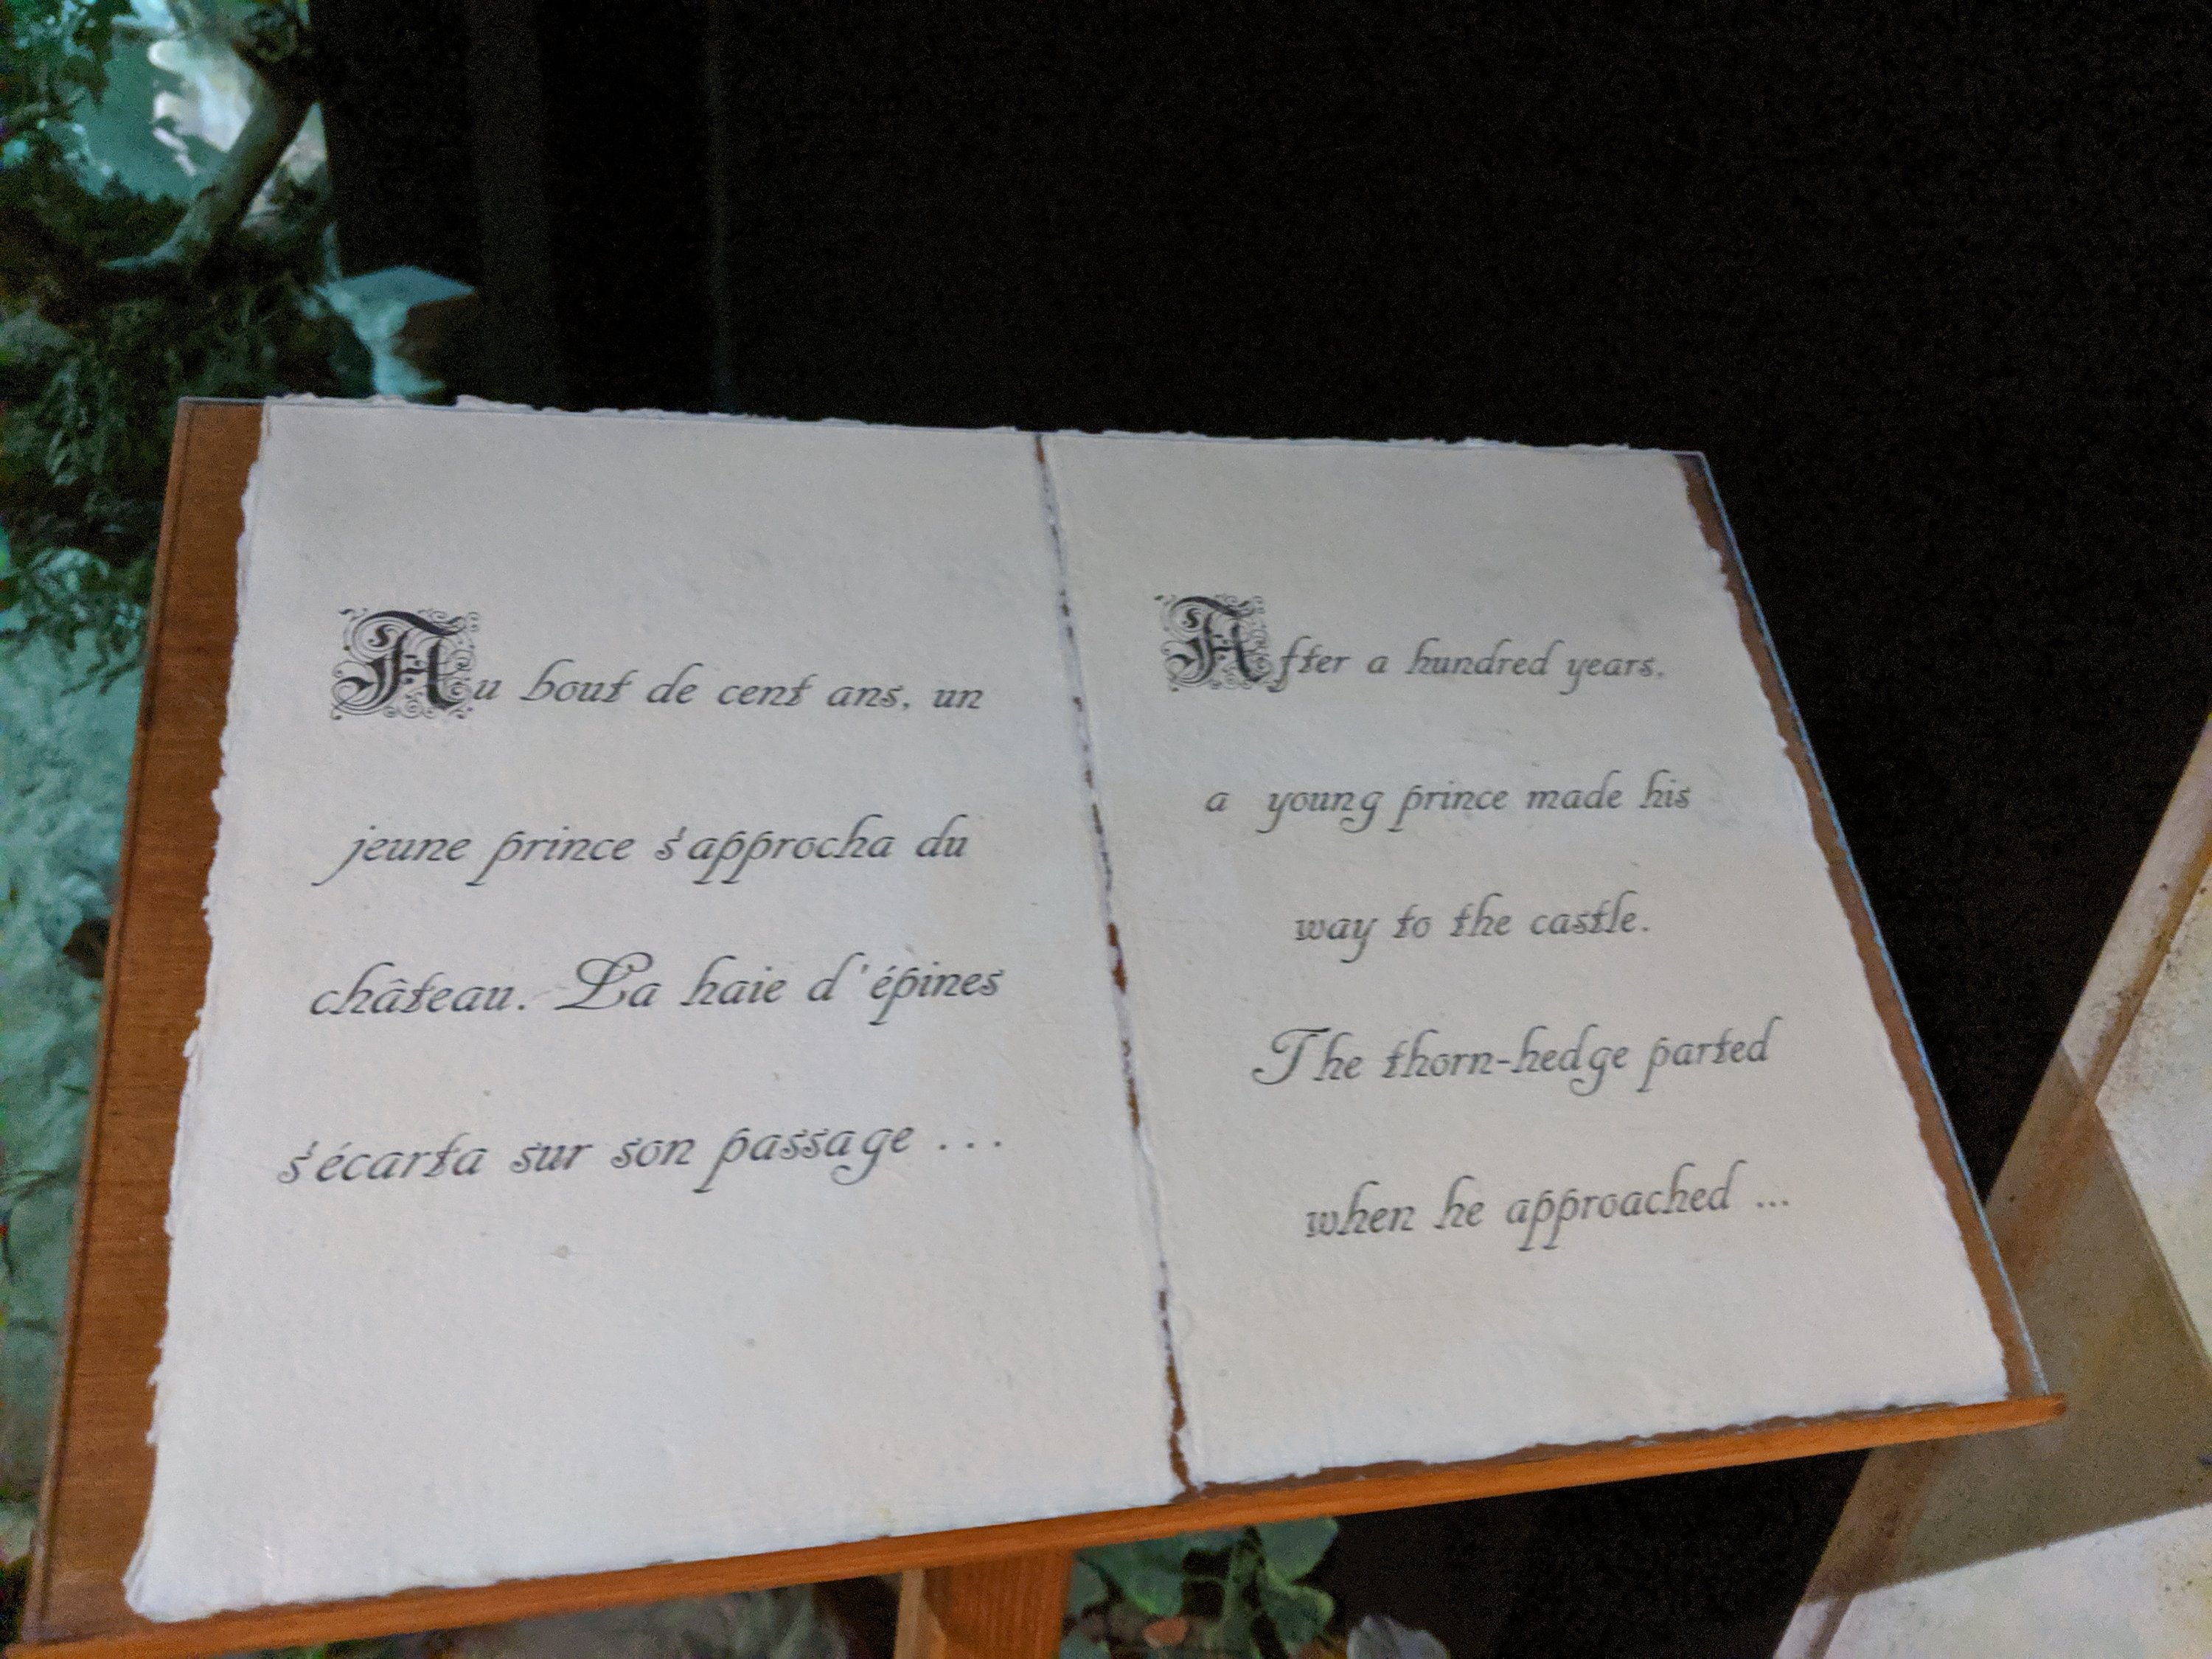 Au bout de cent ans, un
jeune prince s'approcha du
château. La haie d'épines
s'écarta sur son passage ...
After a hundred years,
a young prince made his
way to the castle.
The thorn-hedge parted
when he approached ...